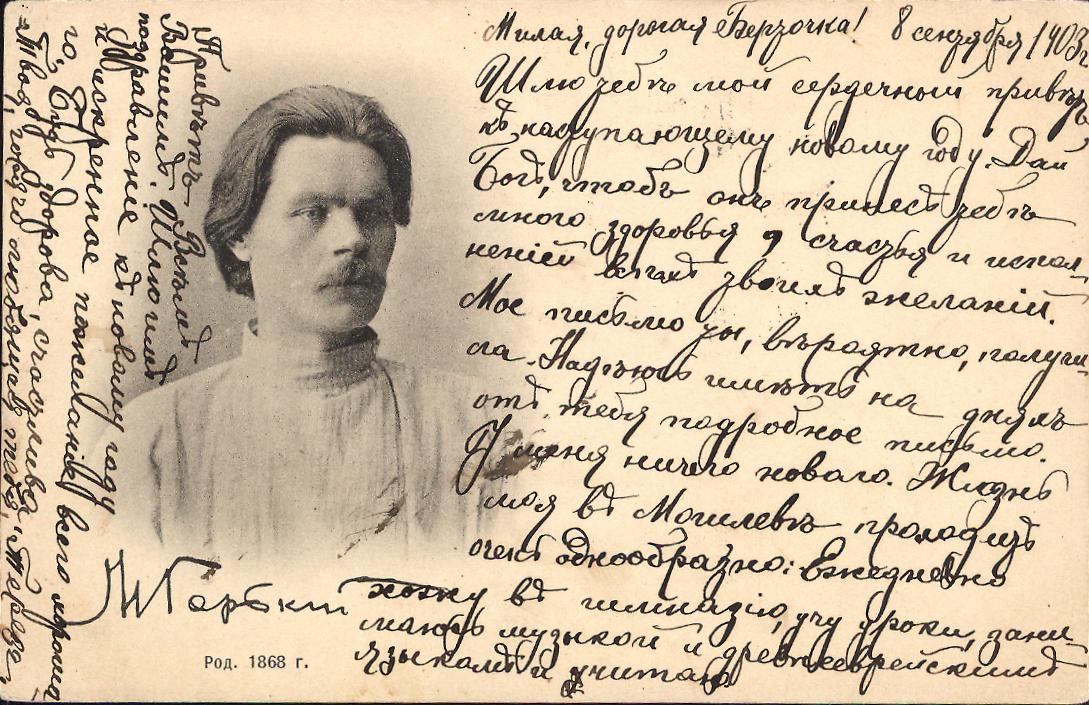 Милая, дорогая Берточка! 8 сентября 1903 г
Шлю тебѣ мой сердечный привѣтъ
къ наступающему новому году. Дай
Богъ, чтобъ онъ принесъ тебѣ
много здоровья, счастья и испол
неній всѣхъ твоихъ желаній.
Мое письмо ты, вѣроятно, получи
ла. Надѣюсь имѣть на дняхъ
отъ тебя подробное письмо.
У меня ничего новаго. Жизнь
моя въ Могилевѣ проходитъ
очень однообразно: Ежедневно
хожу въ гимназію, учу уроки, зани
маюсь музыкой и древнееврейскимъ
языкомъ и читаю.
Привѣтъ Всѣмъ
Вашимъ. Шлю имъ
поздравленіе къ новому году
и искреннѣе пожеланіе всего хороша
го. Будь здорова, счастлива
Твоя, горячо любящая тебя,
М Горькій
Род. 1868 г.